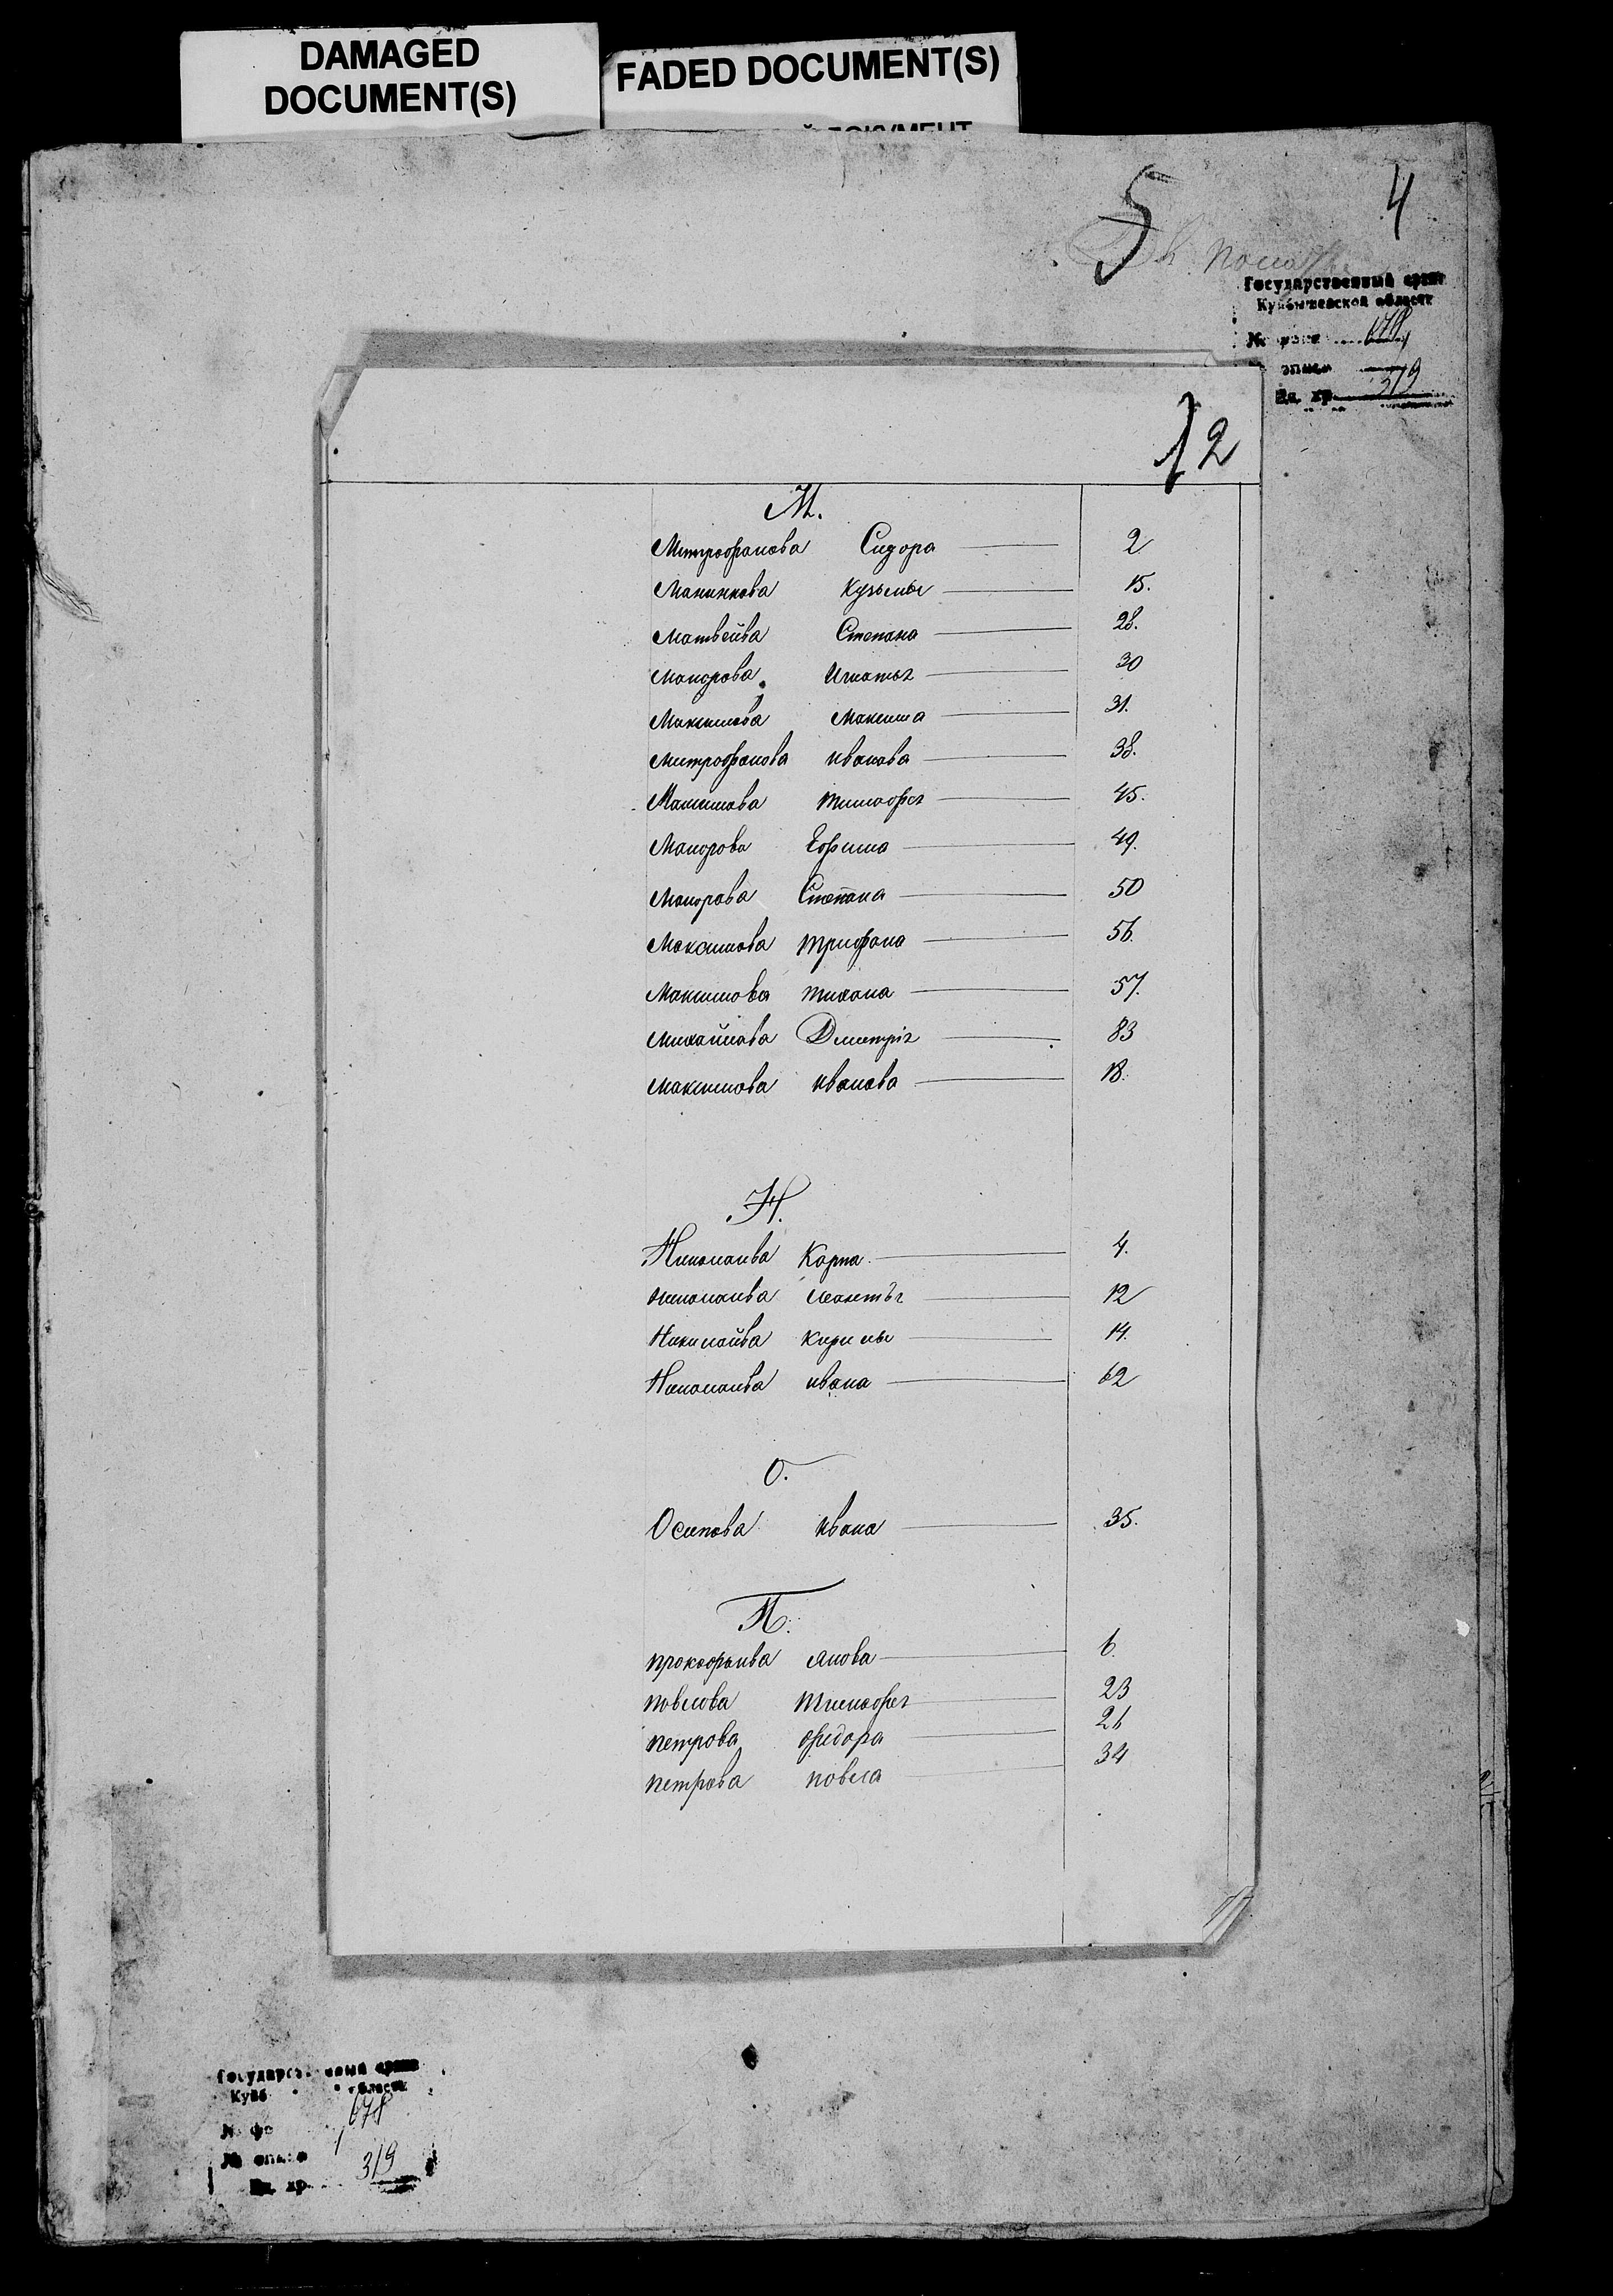 DAMAGED
DOCUMENT(S)
FADED DOCUMENT(S)
ДОКУМЕНТ
5
4
Государственный архив
Куйбышевской области
678
319
12
М.
Митрофанова Сидора 2
Манинкова Кузьмы 15.
Матвеива Степана 28.
Макорова Игнатья 30
Максимова Максима 31.
Митрофанова Иванова 38.
Максимова Тимофея 45.
Макорова Ефима 49.
Макорова Степана 50
Максимова Трифона 56.
Максимова Тихона 57.
Михайлова Дмитрія 83
Максимова Иванова 18.
Н.
Николаива Карпа 4.
Николаива Леонтья 12
Николаива Кирилы 14.
Николаива Ивана 62
О.
Осипова Ивана 35.
П.
Прокофьива Якова 6.
Повлова Тимофея 23
Петрова Фидора 26
Петрова Повла 34
Государственный архив
Куйб области
678
№ описи 1
Ед. хр. 319